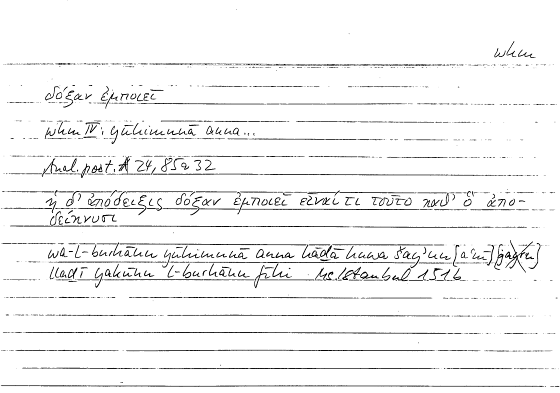 whm
δόξαν ἐμποιεῖ
whm IV: yūhimunā anna...
Anal. post. A 24, 85a32
ἡ δ' ἀπόδειξις δόξαν ἐμποιεῖ εἶναί τι τοῦτο καθ' ὃ ἀπο-
δείκνυσι
wa-l-burhānu yūhimunā anna hāḏā huwa šay'un [a'nī]
llaḏī yakūnu l-burhānu fīhi Ms. Istanbul 1516